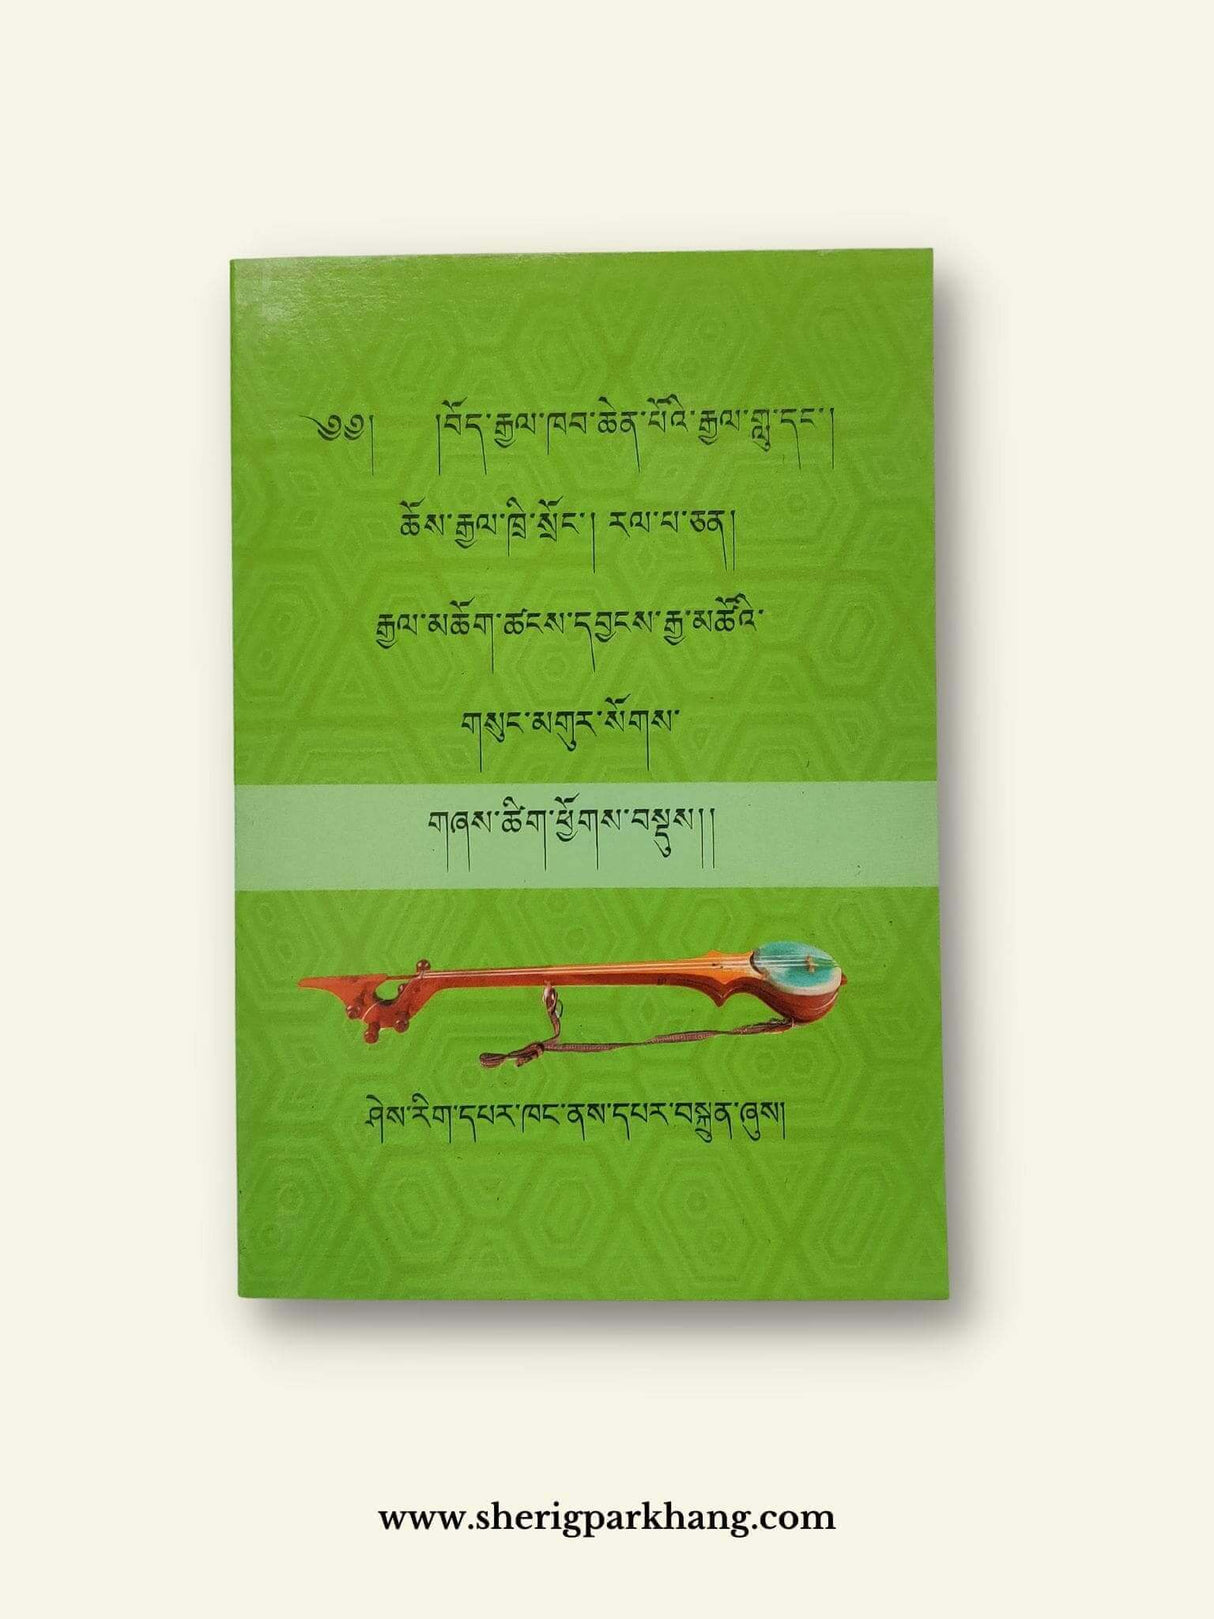 ༄༅། །བོད་རྒྱལ་ཁབ་ཆེན་པོའི་རྒྱལ་གླུ་དང་།
ཆོས་རྒྱལ་ཁྲི་སྲོང་། རལ་པ་ཅན།
རྒྱལ་མཆོག་ཚངས་དབྱངས་རྒྱ་མཚོའི་
གསུང་མགུར་སོགས་
གཞས་ཚིག་ཕྱོགས་བསྡུས།།
ཤེས་རིག་དཔར་ཁང་ནས་དཔར་བསྐྲུན་ཞུས།
www.sherigparkhang.com